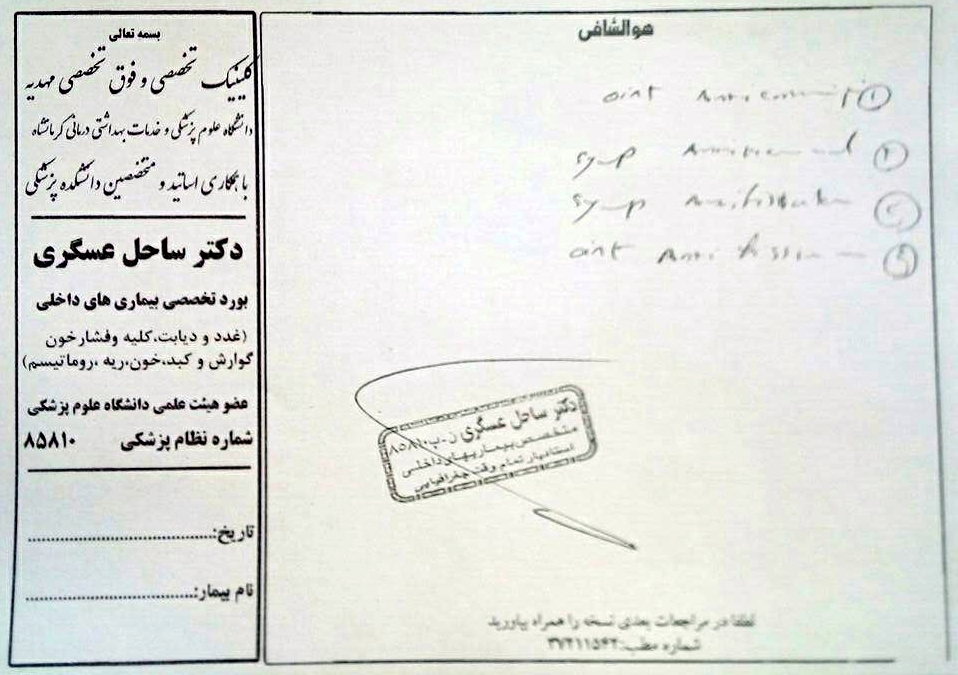 بسمه تعالی
کلینیک تخصصی و فوق تخصصی مهدیه
دانشگاه علوم پزشکی و خدمات بهداشتی درمانی کرمانشاه
با همکاری اساتید و متخصصین دانشکده پزشکی
دکتر ساحل عسگری
بورد تخصصی بیماری های داخلی
(غدد و دیابت،کلیه وفشارخون
گوارش و کبد،خون،ریه ،روماتیسم)
عضو هیئت علمی دانشگاه علوم پزشکی
شماره نظام پزشکی ۸۵۸۱۰
تاریخ:
نام بیمار:
هوالشافی
① oint
② syup
syup
oint Anti fissu
دکتر ساحل عسگری ن-پ۸۵۸۱۰
متخصص بیماریهای داخلی
استادیار تمام وقت جغرافیایی
لطفا در مراجعات بعدی نسخه را همراه بیاورید
شماره مطب:۳۷۲۱۱۵۴۲